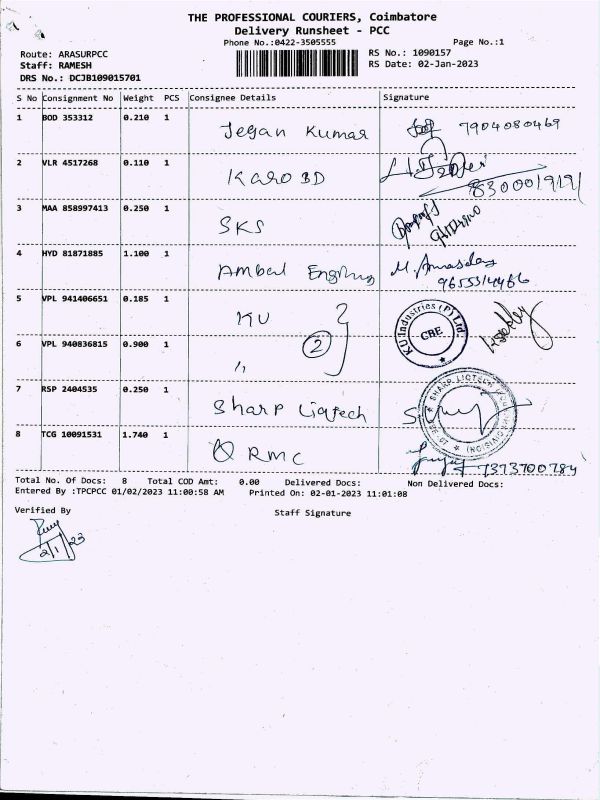 THE PROFESSIONAL COURIERS, Coimbatore
Delivery Runsheet - PCC
Phone No.:0422-3505555
Page No.:1
Route: ARASURPCC
RS No.: 1090157
Staff: RAMESH
RS Date: 02-Jan-2023
DRS No.: DCJB109015701
S No Consignment No Weight PCS Consignee Details Signature
1 BOD 353312 0.210 1 Jegan Kumar 7904080469
2 VLR 4517268 0.110 1 KARO BD
3 MAA 858997413 0.250 1 SKS
4 HYD 81871885 1.100 1 Ambal
5 VPL 941406651 0.185 1 KU KU Industries (P) Ltd. CBE
2
6 VPL 940836815 0.900 1 〃
7 RSP 2404535 0.250 1 Sharp Liqtech SHARP LIQTECH
8 TCG 10091531 1.740 1 QRMC 7373700784
Total No. Of Docs: 8 Total COD Amt: 0.00 Delivered Docs: Non Delivered Docs:
Entered By :TPCPCC 01/02/2023 11:00:58 AM Printed On: 02-01-2023 11:01:08
Verified By
Staff Signature
2/1/23